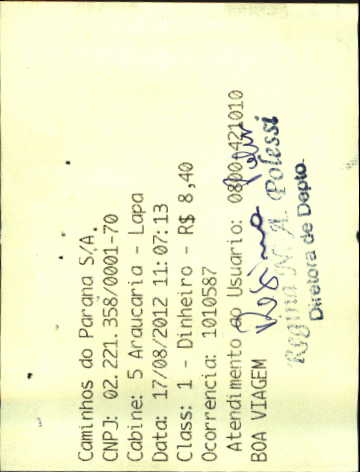 Caminhos do Parana S/A.
CNPJ: 02.221.358/0001-70
Cabine: 5 Araucaria - Lapa
Data: 17/08/2012 11:07:13
Class: 1 - Dinheiro - R$ 8,40
Ocorrencia: 1010587
Atendimento ao Usuario: 0800 421010
BOA VIAGEM
Regina M. A. Polessi
Diretora de Depto.